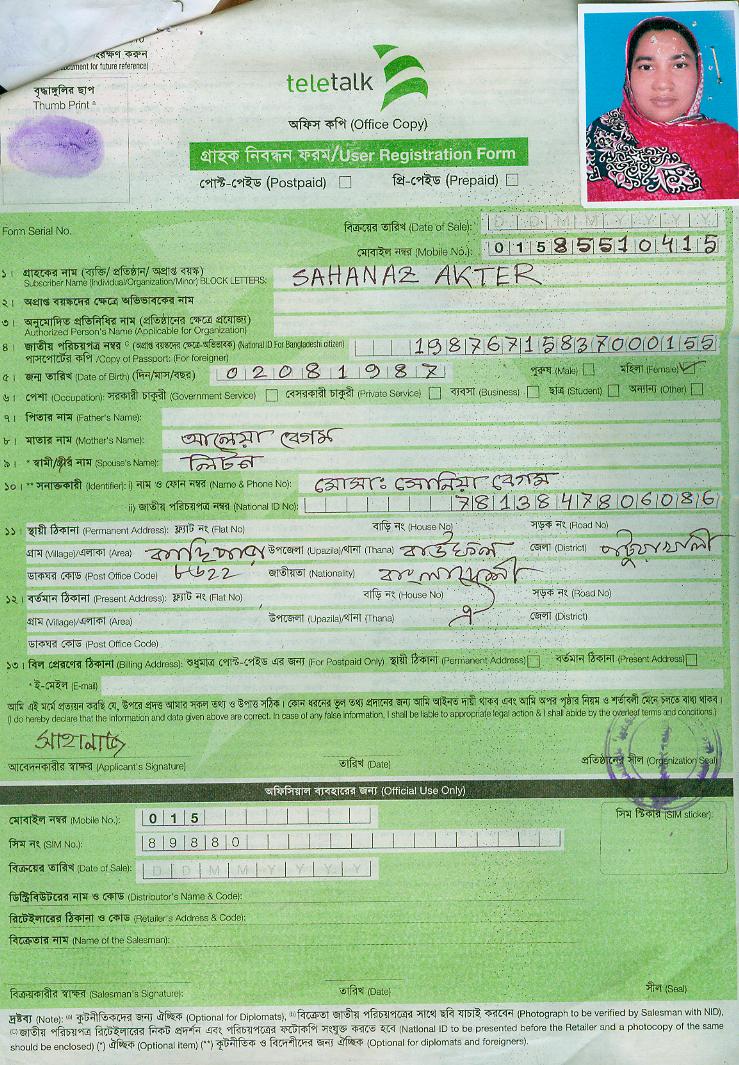 ংরক্ষণ করুন
ocument for future reference)
বৃদ্ধাঙ্গুলির ছাপ
Thumb Print
teletalk
অফিস কপি (Office Copy)
গ্রাহক নিবন্ধন ফরম/User Registration Form
পোস্ট-পেইড (Postpaid) প্রি-পেইড (Prepaid)
Form Serial No. বিক্রয়ের তারিখ (Date of Sale): D D M M Y Y Y Y
মোবাইল নম্বর (Mobile No.): 01585510415
১। গ্রাহকের নাম (ব্যক্তি/ প্রতিষ্ঠান/ অপ্রাপ্ত বয়স্ক)
Subscriber Name (Individual/Organization/Minor) BLOCK LETTERS: SAHANAZ AKTER
২। অপ্রাপ্ত বয়স্কদের ক্ষেত্রে অভিভাবকের নাম
৩। অনুমোদিত প্রতিনিধির নাম (প্রতিষ্ঠানের ক্ষেত্রে প্রযোজ্য)
Authorized Person's Name (Applicable for Organization)
৪। জাতীয় পরিচয়পত্র নম্বর (অপ্রাপ্ত বয়স্কদের ক্ষেত্রে-অভিভাবক) (National ID For Bangladeshi citizen) 19876715837000155
পাসপোর্টের কপি /Copy of Passport: (For foreigner)
৫। জন্ম তারিখ (Date of Birth) (দিন/মাস/বছর) 02081987 পুরুষ (Male) মহিলা (Female)
৬। পেশা (Occupation): সরকারী চাকুরী (Government Service) বেসরকারী চাকুরী (Private Service) ব্যবসা (Business) ছাত্র (Student) অন্যান্য (Other)
৭। পিতার নাম (Father's Name):
৮। মাতার নাম (Mother's Name): আলেয়া বেগম
৯। * স্বামী/স্ত্রীর নাম (Spouse's Name): লিটন
১০। ** সনাক্তকারী (Identifier): i) নাম ও ফোন নম্বর (Name & Phone No): মোসাঃ সোনিয়া বেগম
ii) জাতীয় পরিচয়পত্র নম্বর (National ID No): 7813847806086
১১। স্থায়ী ঠিকানা (Permanent Address): ফ্ল্যাট নং (Flat No) বাড়ি নং (House No) সড়ক নং (Road No)
গ্রাম (Village)/এলাকা (Area) উপজেলা (Upazila)/থানা (Thana) বাউফল জেলা (District) পটুয়াখালী
ডাকঘর কোড (Post Office Code) ৮৬২২ জাতীয়তা (Nationality) বাংলাদেশী
১২। বর্তমান ঠিকানা (Present Address): ফ্ল্যাট নং (Flat No) বাড়ি নং (House No) সড়ক নং (Road No)
গ্রাম (Village)/এলাকা (Area) উপজেলা (Upazila)/থানা (Thana) ঐ জেলা (District)
ডাকঘর কোড (Post Office Code)
১৩। বিল প্রেরণের ঠিকানা (Billing Address): শুধুমাত্র পোস্ট-পেইড এর জন্য (For Postpaid Only) স্থায়ী ঠিকানা (Permanent Address) বর্তমান ঠিকানা (Present Address)
* ই-মেইল (E-mail)
আমি এই মর্মে প্রত্যয়ন করছি যে, উপরে প্রদত্ত আমার সকল তথ্য ও উপাত্ত সঠিক। কোন ধরনের ভুল তথ্য প্রদানের জন্য আমি আইনত দায়ী থাকব এবং আমি অপর পৃষ্ঠার নিয়ম ও শর্তাবলী মেনে চলতে বাধ্য থাকব।
(I do hereby declare that the information and data given above are correct. In case of any false information, I shall be liable to appropriate legal action & I shall abide by the overleaf terms and conditions.)
সাহানাজ
আবেদনকারীর স্বাক্ষর (Applicant's Signature) তারিখ (Date) প্রতিষ্ঠানের সীল (Organization Seal)
অফিসিয়াল ব্যবহারের জন্য (Official Use Only)
মোবাইল নম্বর (Mobile No.): 015 সিম স্টিকার (SIM sticker):
সিম নং (SIM No.): 89880
বিক্রয়ের তারিখ (Date of Sale): D D M M Y Y Y Y
ডিস্ট্রিবিউটরের নাম ও কোড (Distributor's Name & Code):
রিটেইলারের ঠিকানা ও কোড (Retailer's Address & Code):
বিক্রেতার নাম (Name of the Salesman):
বিক্রয়কারীর স্বাক্ষর (Salesman's Signature): তারিখ (Date) সীল (Seal)
দ্রষ্টব্য (Note): কূটনীতিকদের জন্য ঐচ্ছিক (Optional for Diplomats), বিক্রেতা জাতীয় পরিচয়পত্রের সাথে ছবি যাচাই করবেন (Photograph to be verified by Salesman with NID),
জাতীয় পরিচয়পত্র রিটেইলারের নিকট প্রদর্শন এবং পরিচয়পত্রের ফটোকপি সংযুক্ত করতে হবে (National ID to be presented before the Retailer and a photocopy of the same
should be enclosed) (*) ঐচ্ছিক (Optional item) (**) কূটনীতিক ও বিদেশীদের জন্য ঐচ্ছিক (Optional for diplomats and foreigners).